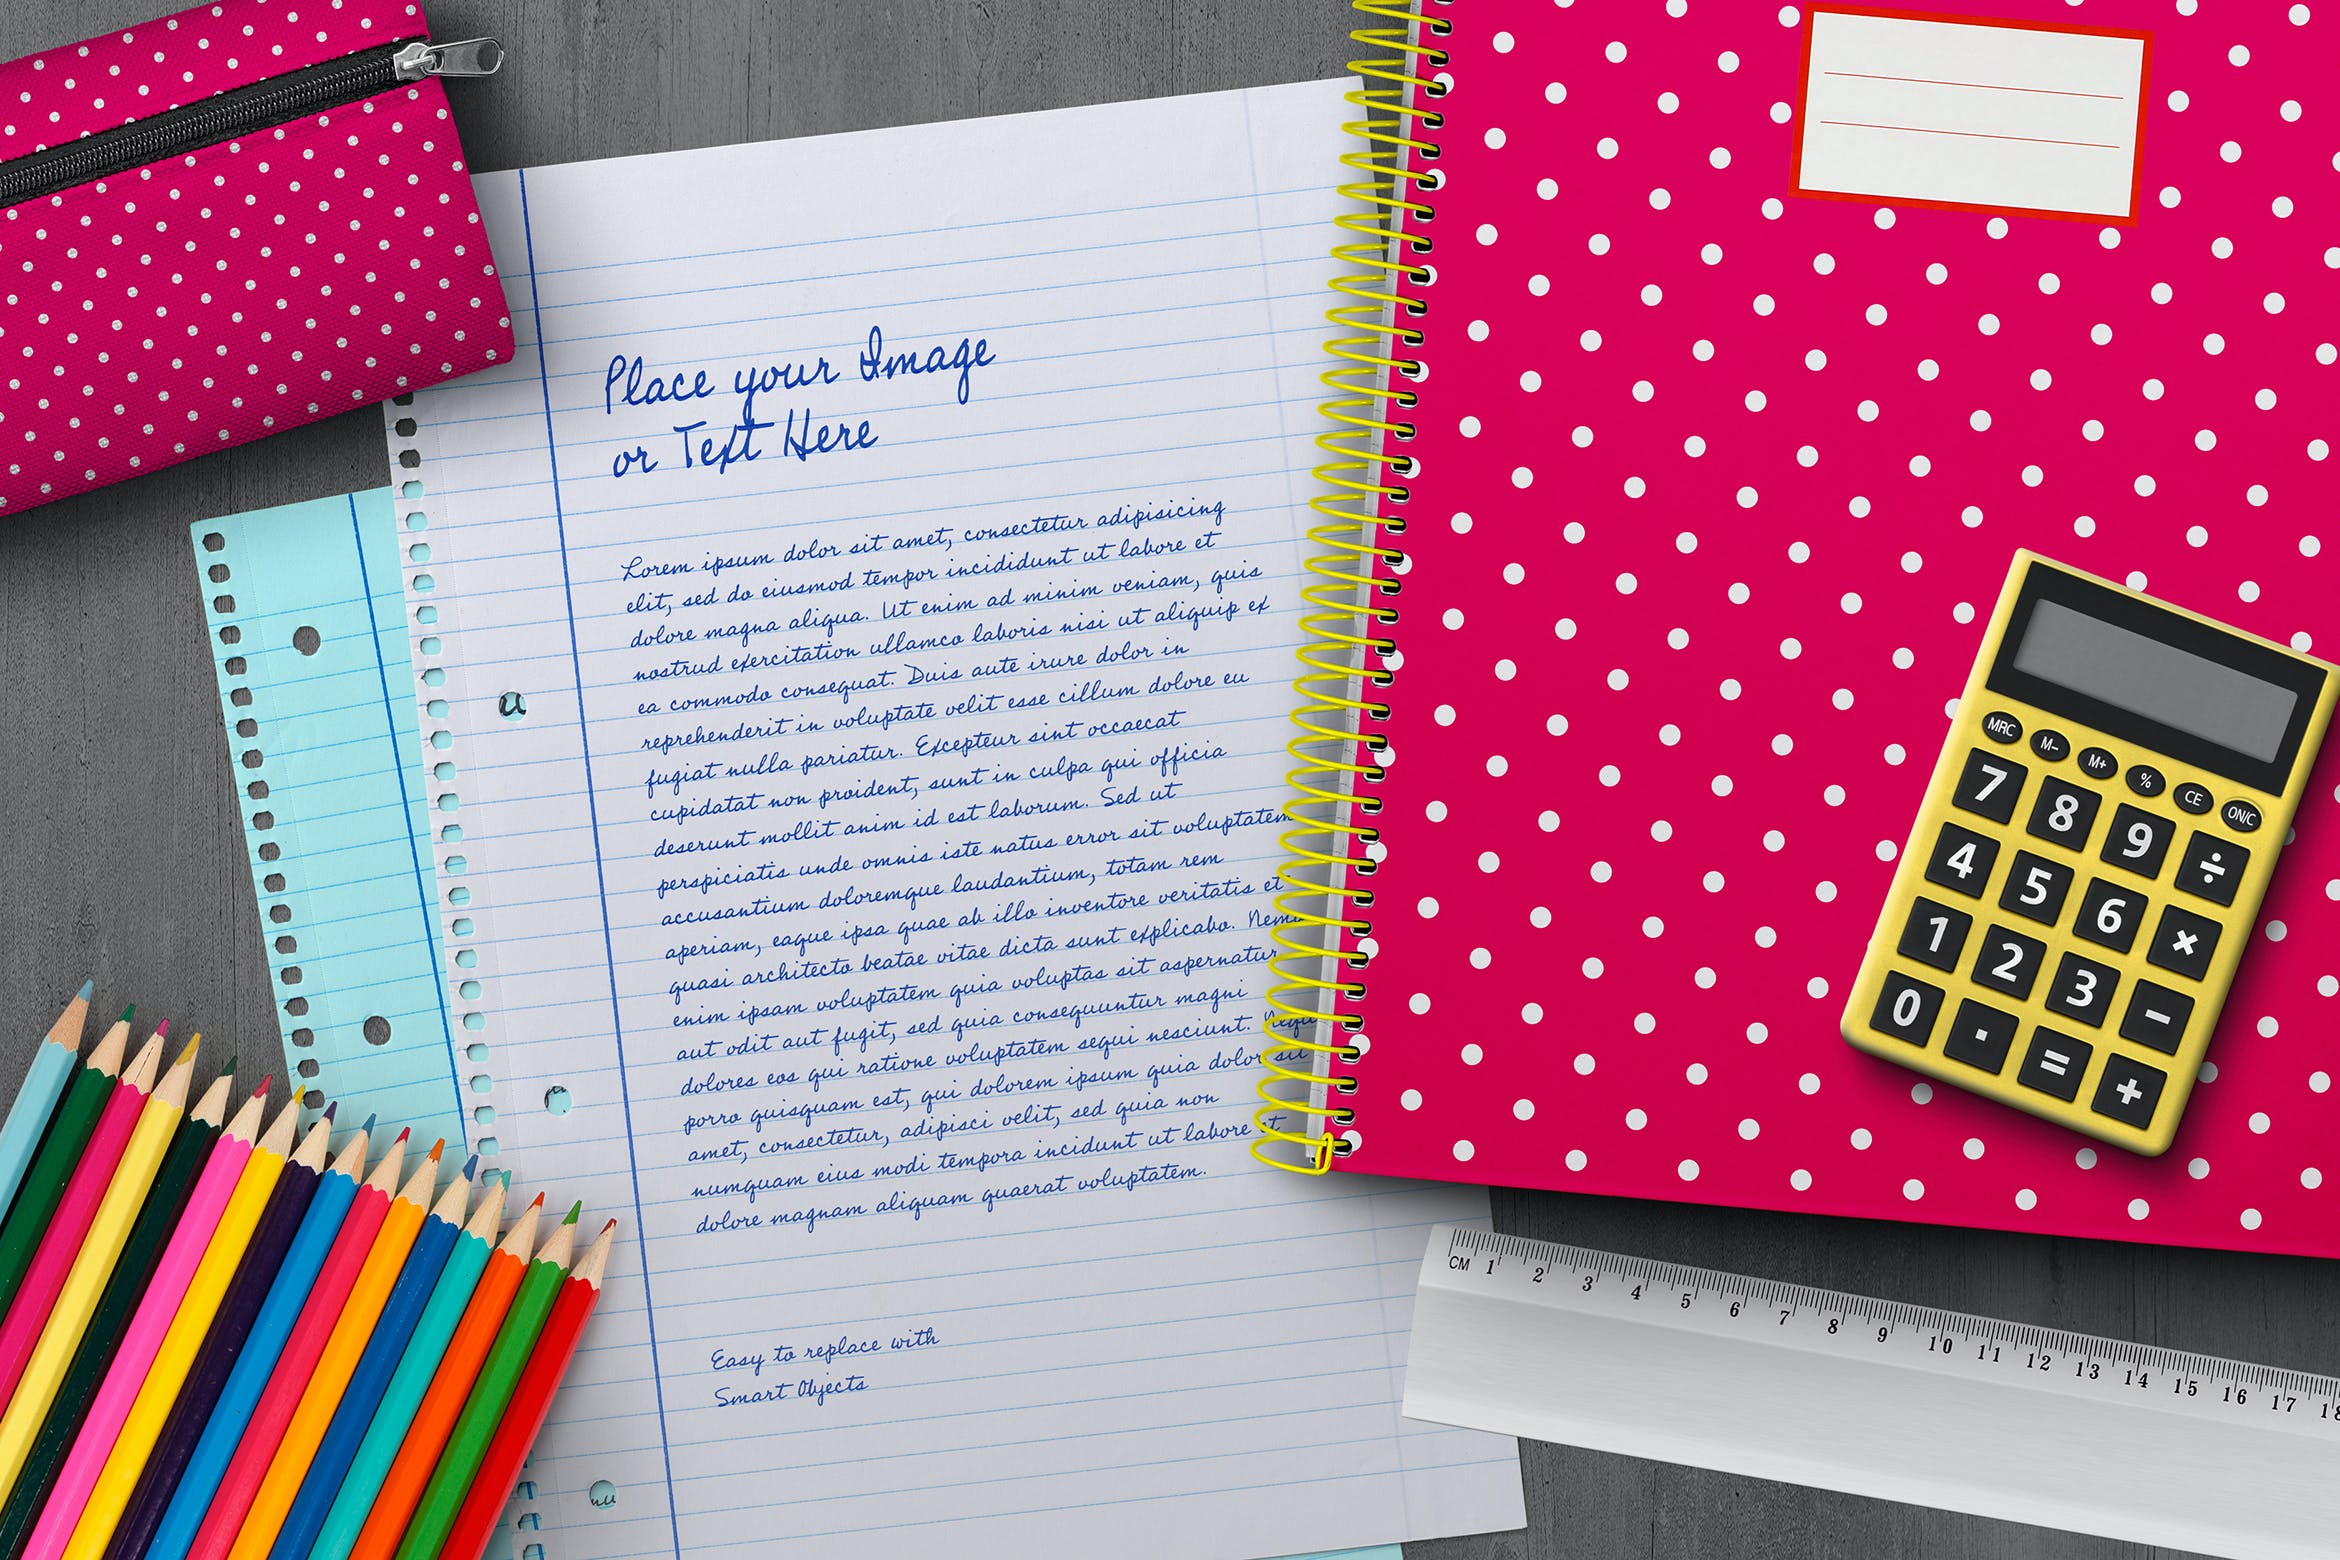 Place your Image
or Text Here
Lorem ipsum dolor sit amet, consectetur adipisicing
elit, sed do eiusmod tempor incididunt ut labore et
dolore magna aliqua. Ut enim ad minim veniam, quis
nostrud exercitation ullamco laboris nisi ut aliquip ex
ea commodo consequat. Duis aute irure dolor in
reprehenderit in voluptate velit esse cillum dolore eu
fugiat nulla pariatur. Excepteur sint occaecat
cupidatat non proident, sunt in culpa qui officia
deserunt mollit anim id est laborum. Sed ut
perspiciatis unde omnis iste natus error sit voluptatem
accusantium doloremque laudantium, totam rem
aperiam, eaque ipsa quae ab illo inventore veritatis et
quasi architecto beatae vitae dicta sunt explicabo.
enim ipsam voluptatem quia voluptas sit aspernatur
aut odit aut fugit, sed quia consequuntur magni
dolores eos qui ratione voluptatem sequi nesciunt.
porro quisquam est, qui dolorem ipsum quia dolor sit
amet, consectetur, adipisci velit, sed quia non
numquam eius modi tempora incidunt ut labore et
dolore magnam aliquam quaerat voluptatem.
Easy to replace with
Smart Objects
MRC M- M+ % CE ON/C
7 8 9 ÷
4 5 6 ×
1 2 3 −
0 . = +
CM 1 2 3 4 5 6 7 8 9 10 11 12 13 14 15 16 17 18